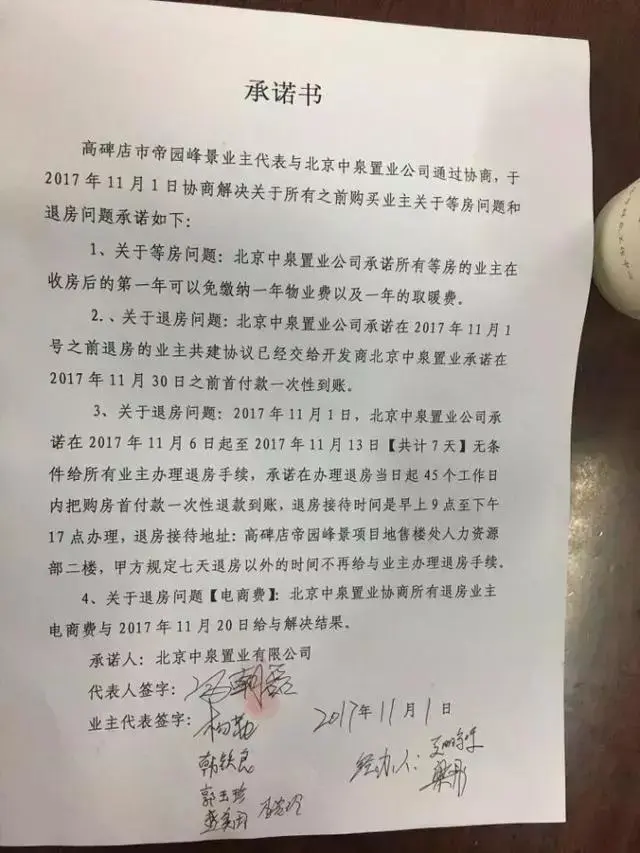 承诺书
高碑店市帝园峰景业主代表与北京中泉置业公司通过协商，于
2017 年 11 月 1 日协商解决关于所有之前购买业主关于等房问题和
退房问题承诺如下：
1、关于等房问题：北京中泉置业公司承诺所有等房的业主在
收房后的第一年可以免缴纳一年物业费以及一年的取暖费。
2.、关于退房问题：北京中泉置业公司承诺在 2017 年 11 月 1
号之前退房的业主共建协议已经交给开发商北京中泉置业承诺在
2017 年 11 月 30 日之前首付款一次性到账。
3、关于退房问题：2017 年 11 月 1 日，北京中泉置业公司承
诺在 2017 年 11 月 6 日起至 2017 年 11 月 13 日【共计 7 天】无条
件给所有业主办理退房手续，承诺在办理退房当日起 45 个工作日
内把购房首付款一次性退款到账，退房接待时间是早上 9 点至下午
17 点办理，退房接待地址：高碑店帝园峰景项目地售楼处人力资源
部二楼，甲方规定七天退房以外的时间不再给与业主办理退房手续。
4、关于退房问题【电商费】：北京中泉置业协商所有退房业主
电商费与 2017 年 11 月 20 日给与解决结果。
承诺人：北京中泉置业有限公司
代表人签字：
业主代表签字：
2017年11月1日
韩铁良
经办人：
郭玉珍